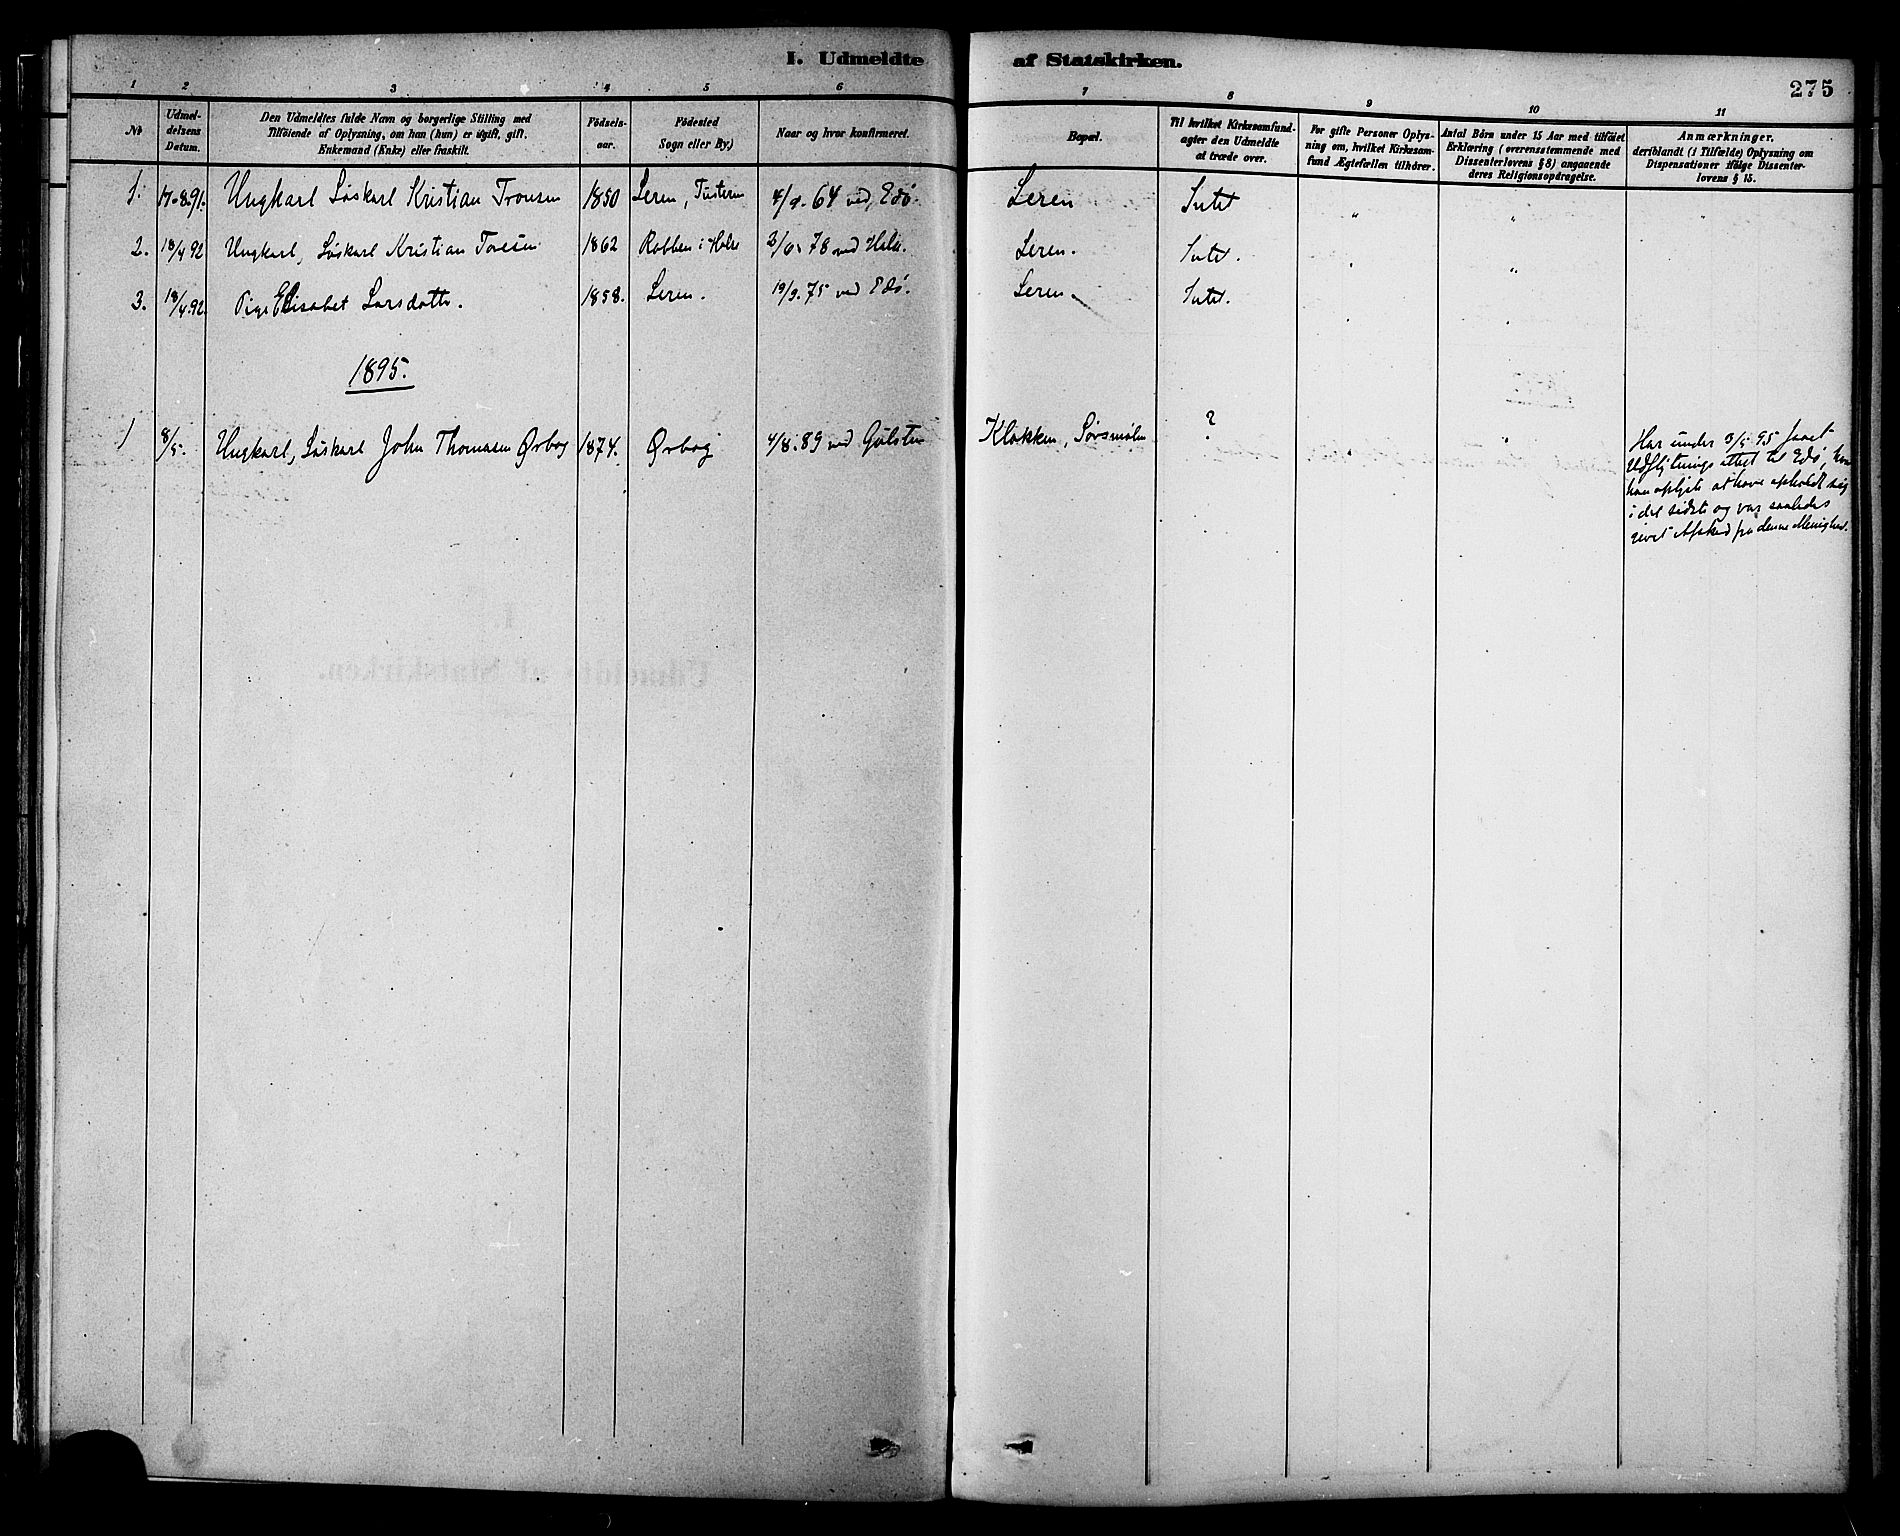 I. Udmeldte af Statskirken.
275
1 2 3 4 5 6 7 8 9 10 11
No
Udmel-
delsens
Datum.
Den Udmeldtes fulde Navn og borgerlige Stilling med
Tilföiende af Oplysning, om han (hun) er ugift, gift.
Enkemand (Enke) eller fraskilt.
Födsels-
aar.
Födested
Sogn eller By,)
Naar og hvor konfirmeret.
Bopæl.
Til hvilket Kirkesamfund
agter den Udmeldte
at træde over.
For gifte Personer Oplys-
ning om, hvilket Kirkesam-
fund Ægtefællen tilhörer.
Antal Börn under 15 Aar med tilföiet
Erklæring (overensstemmende med
Dissenterlovens § 8) angaaende
deres Religionsopdragelse.
Anmærkninger,
deriblandt (i Tilfælde) Oplysning om
Dispensationer ifölge Dissenter-
lovens § 15.
1. 17-8.91. Ungkarl Løskarl Kristian Tronsen 1850 Leren, Tusteren 4/9. 64 ved Edø. Leren Intet " " "
2. 18/4 92 Ungkarl, Løskarl Kristian 1862 i Halse 78 ved Halse. Leren. Intet. " "
3. 18/4.92. Pige Elisabet Larsdatter. 1858. Leren. 19/9. 75 ved Edø. Leren. Intet. " "
1895.
1 8/5. Ungkarl, Løskarl John Thomasen Ørbog 1874. Ørbog 4/8. 89 ved Gulsten Klakken, Sørsmølen ? "
Har under 3/5 95 faaet
Udflytningsattest til Edø, hvor
han oplyste at have opholdt sig
i det sidste og var saaledes
givet Afsked fra denne Menighed.